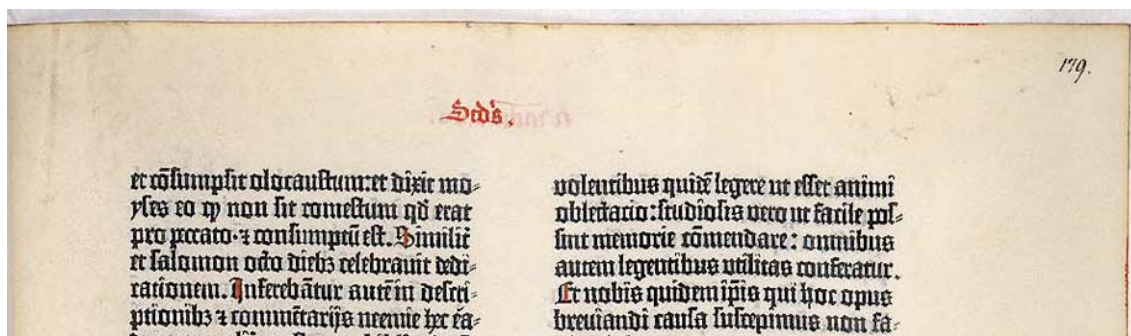 179.
Scd's.
et cōsumpsit olocaustum: et dixit mo⸗
yses eo ꝙ non sit comestum qd̄ erat
pro peccato · ⁊ consumptū est. Similit̄
et salomon octo diebꝫ celebrauit dedi⸗
cationem. Inferebātur autē in descri⸗
ptionibꝫ ⁊ commētarijs neemie hec ea⸗
volentibus quidē legere ut esset animi
oblectacio: studiosis vero ut facile pos⸗
sint memorie cōmendare: omnibus
autem legentibus vtilitas conferatur.
Et nobis quidem ip̄is qui hoc opus
breuiandi causa suscepimus non fa⸗